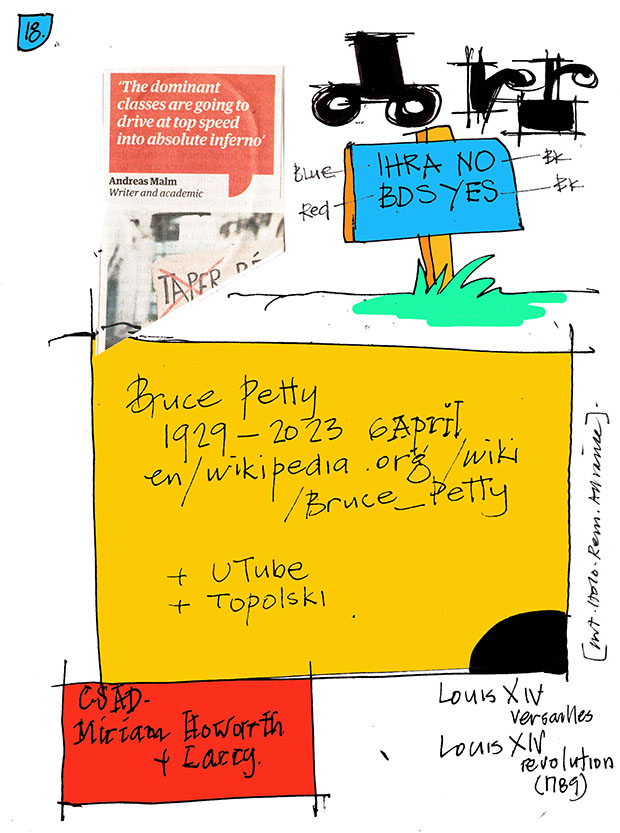 18.
'The dominant
classes are going to
drive at top speed
into absolute inferno'
Andreas Malm
Writer and academic
TAPER
Blue
Red
IHRA NO
BDS YES
BK
BK
Bruce Petty
1929 – 2023 6 April
en/wikipedia.org/wiki
/Bruce_Petty
+ UTube
+ TOPOLSKI
[Int. Holo. Rem. Advance].
CSAD-
Miriam Howorth
+ Larry.
Louis XIV
Versailles
Louis XIV
revolution
(1789)